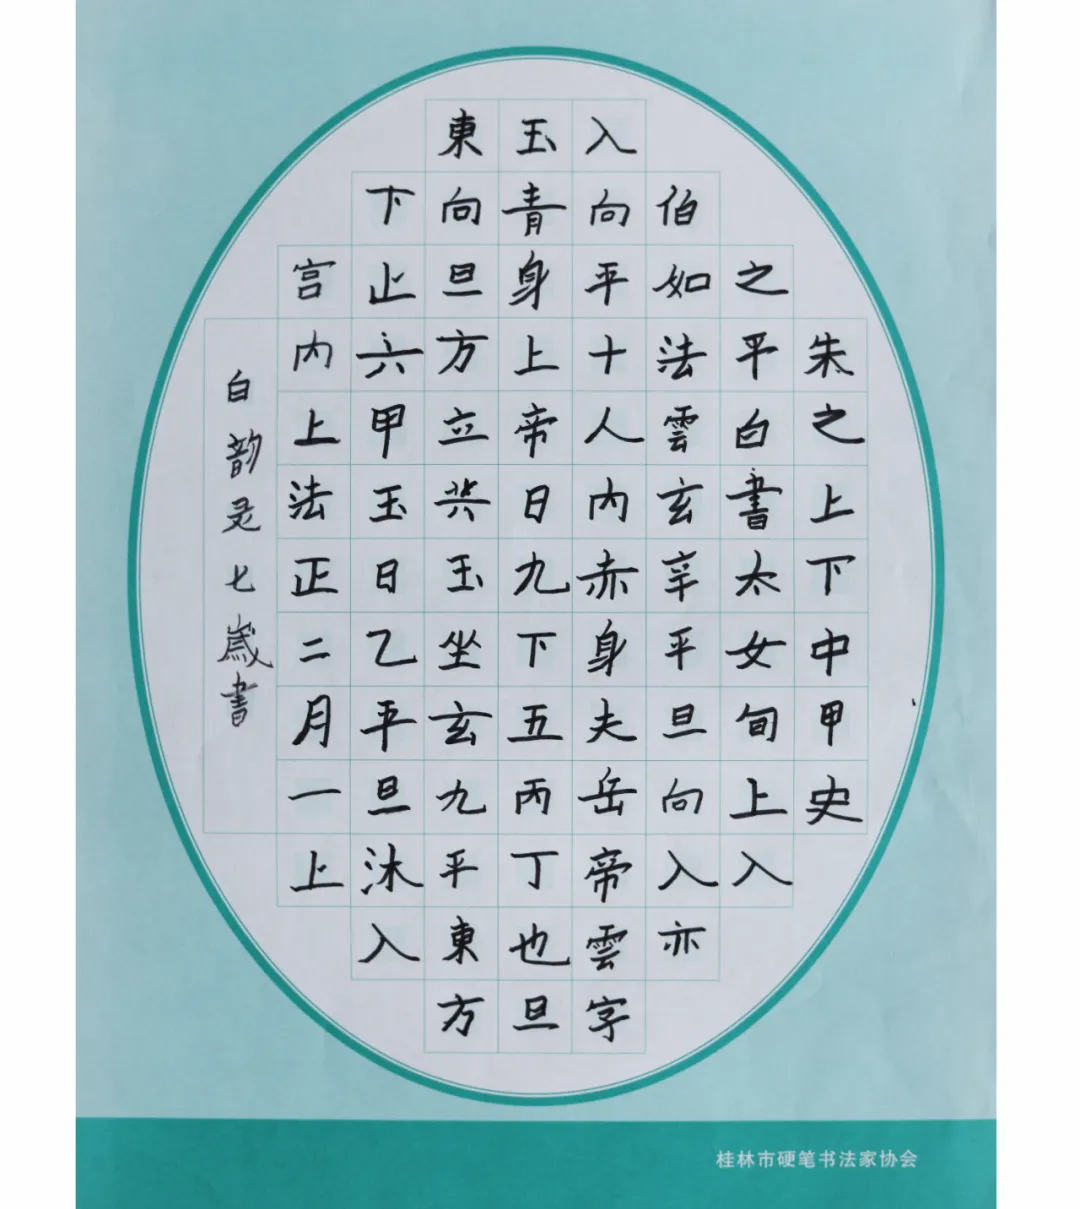 朱之上下中甲史
之平白書太女旬上入
伯如法雲玄辛平旦向入亦
入向平十人内赤身夫岳帝雲字
玉青身上帝日九下五丙丁也旦
東向旦方立玉坐玄九平東方
下止六甲玉日乙平旦沐入
宫内上法正二月一上
白韵灵七歲書
桂林市硬笔书法家协会